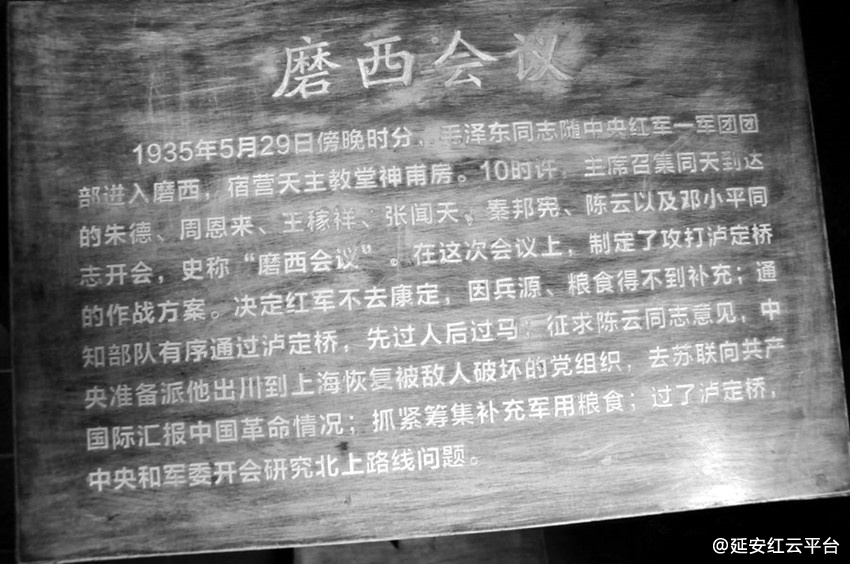 磨西会议
1935年5月29日傍晚时分，毛泽东同志随中央红军一军团团
部进入磨西，宿营天主教堂神甫房。10时许，主席召集同天到达
的朱德、周恩来、王稼祥、张闻天、秦邦宪、陈云以及邓小平同
志开会，史称“磨西会议”。在这次会议上，制定了攻打泸定桥
的作战方案。决定红军不去康定，因兵源、粮食得不到补充；通
知部队有序通过泸定桥，先过人后过马；征求陈云同志意见，中
央准备派他出川到上海恢复被敌人破坏的党组织，去苏联向共产
国际汇报中国革命情况；抓紧筹集补充军用粮食；过了泸定桥，
中央和军委开会研究北上路线问题。
@延安红云平台